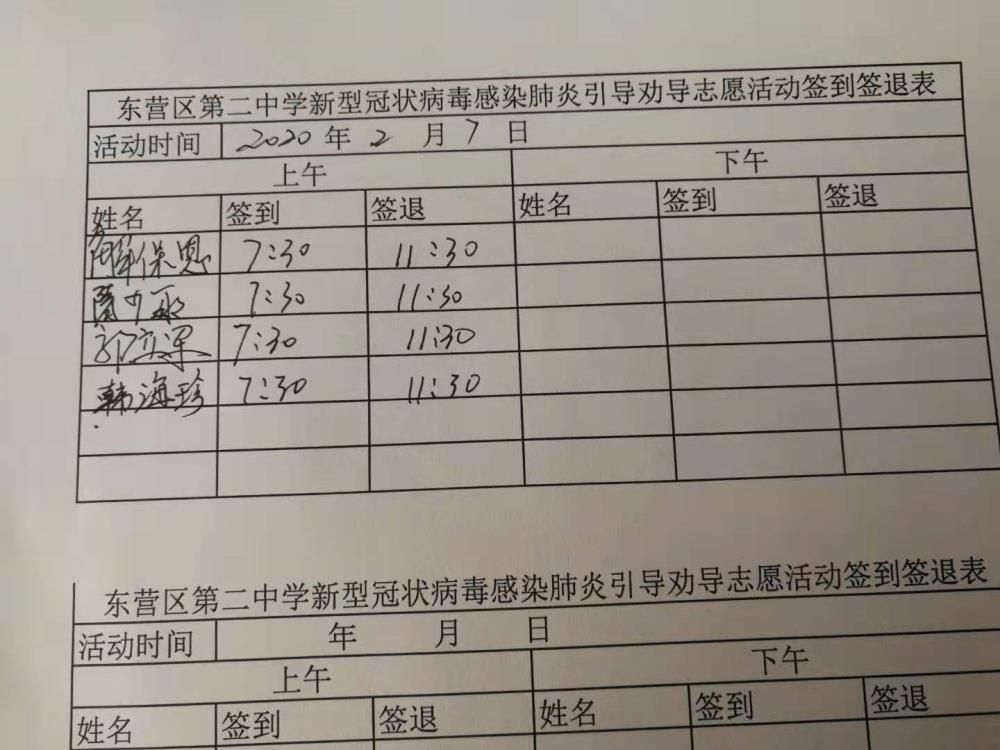 东营区第二中学新型冠状病毒感染肺炎引导劝导志愿活动签到签退表
活动时间 2020 年 2 月 7 日
上午 下午
姓名 签到 签退 姓名 签到 签退
保恩 7:30 11:30
7:30 11:30
郭 7:30 11:30
韩海珍 7:30 11:30
东营区第二中学新型冠状病毒感染肺炎引导劝导志愿活动签到签退表
活动时间 年 月 日
上午 下午
姓名 签到 签退 姓名 签到 签退